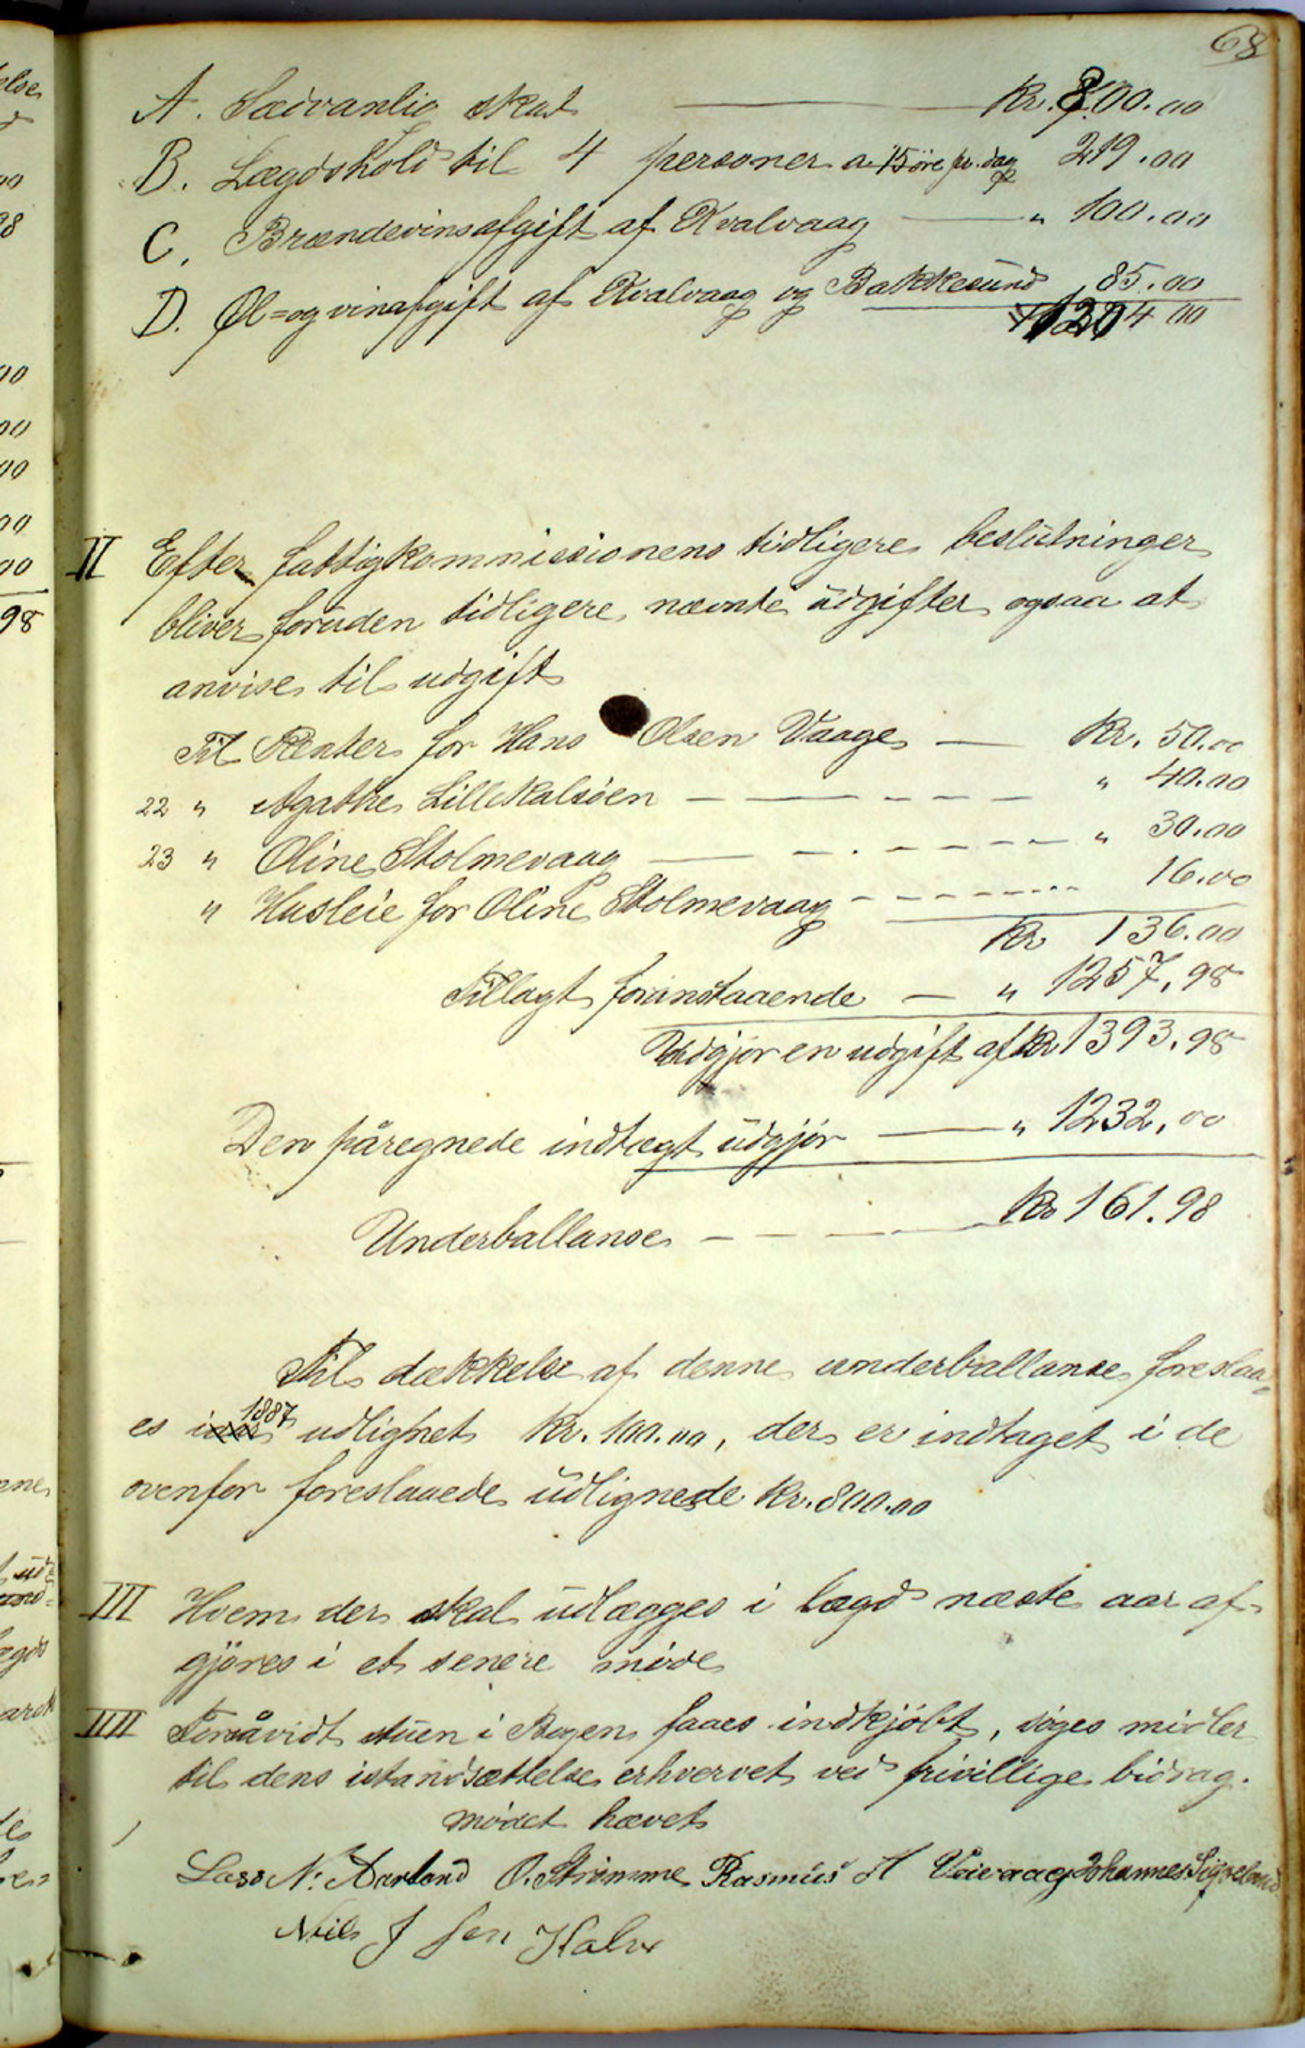 68
A. Sædvanlig skat — Kr. 800.00
B. Lægdshold til 4 personer a. 15 øre pr. dag 219.00
C. Brændevinsafgift af Kvalvaag — " 100.00
D. Øl= og vinafgift af Kvalvaag og Bakkesund 85.00
1204 00
II Efter fattigkommissionens tidligere beslutninger
bliver foruden tidligere nævnte udgifter ogsaa at
anvise til udgift
Til Renter for Hans Olsen Vaage — Kr. 50.00
22 " Agathe Lillekalsøen — — — — — " 40.00
23 " Oline Stolmevaag — — . — — — — " 30.00
" Husleie for Oline Stolmevaag - - - - - - 16.00
Kr 136.00
Tillagt foranstaaende — " 1257,98
Udgjør en udgift af Kr 1393.98
Den påregnede indtægt udgjør — " 1232,00
Underballanse — — — — Kr 161.98
Til dækkelse af denne underballanse foreslaa=
es 1887 udlignet Kr. 100.00, der er indtaget i de
ovenfor foreslaaede udlignede Kr. 800.00
III Hvem der skal udlægges i lægd næste aar af-
gjøres i et senere møde
IIII Forsåvidt stuen i Bogen faaes indkjøbt, søges midler
til dens istandsættelse erhvervet ved frivillige bidrag.
Mødet hævet
Lass N. Aarland O. Strømme Rasmus H Veivaag Johannes Sigveland
Nils J sen Kalve